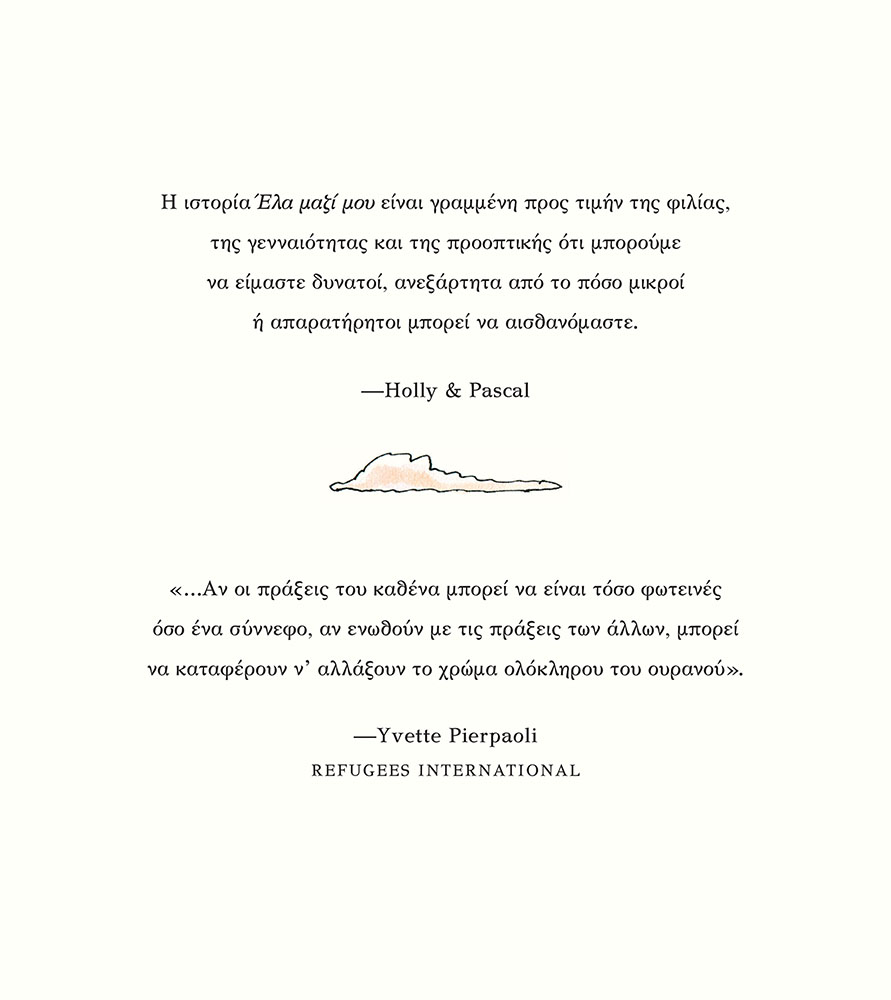 Η ιστορία Έλα μαζί μου είναι γραμμένη προς τιμήν της φιλίας,
της γενναιότητας και της προοπτικής ότι μπορούμε
να είμαστε δυνατοί, ανεξάρτητα από το πόσο μικροί
ή απαρατήρητοι μπορεί να αισθανόμαστε.
—Holly & Pascal
«…Αν οι πράξεις του καθένα μπορεί να είναι τόσο φωτεινές
όσο ένα σύννεφο, αν ενωθούν με τις πράξεις των άλλων, μπορεί
να καταφέρουν ν’ αλλάξουν το χρώμα ολόκληρου του ουρανού».
—Yvette Pierpaoli
REFUGEES INTERNATIONAL